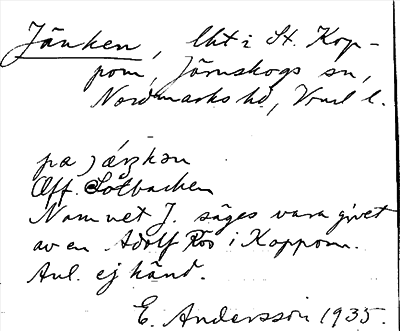 Jänken, lht i St. Kop-
pom, Järnskogs sn,
Nordmarks hd, Vrml l.
pa jäŋkən
Off. Solbacken
Namnet J. säges vara givet
av en Adolf Roo i Koppom.
Anl. ej känd.
E. Andersson 1935.